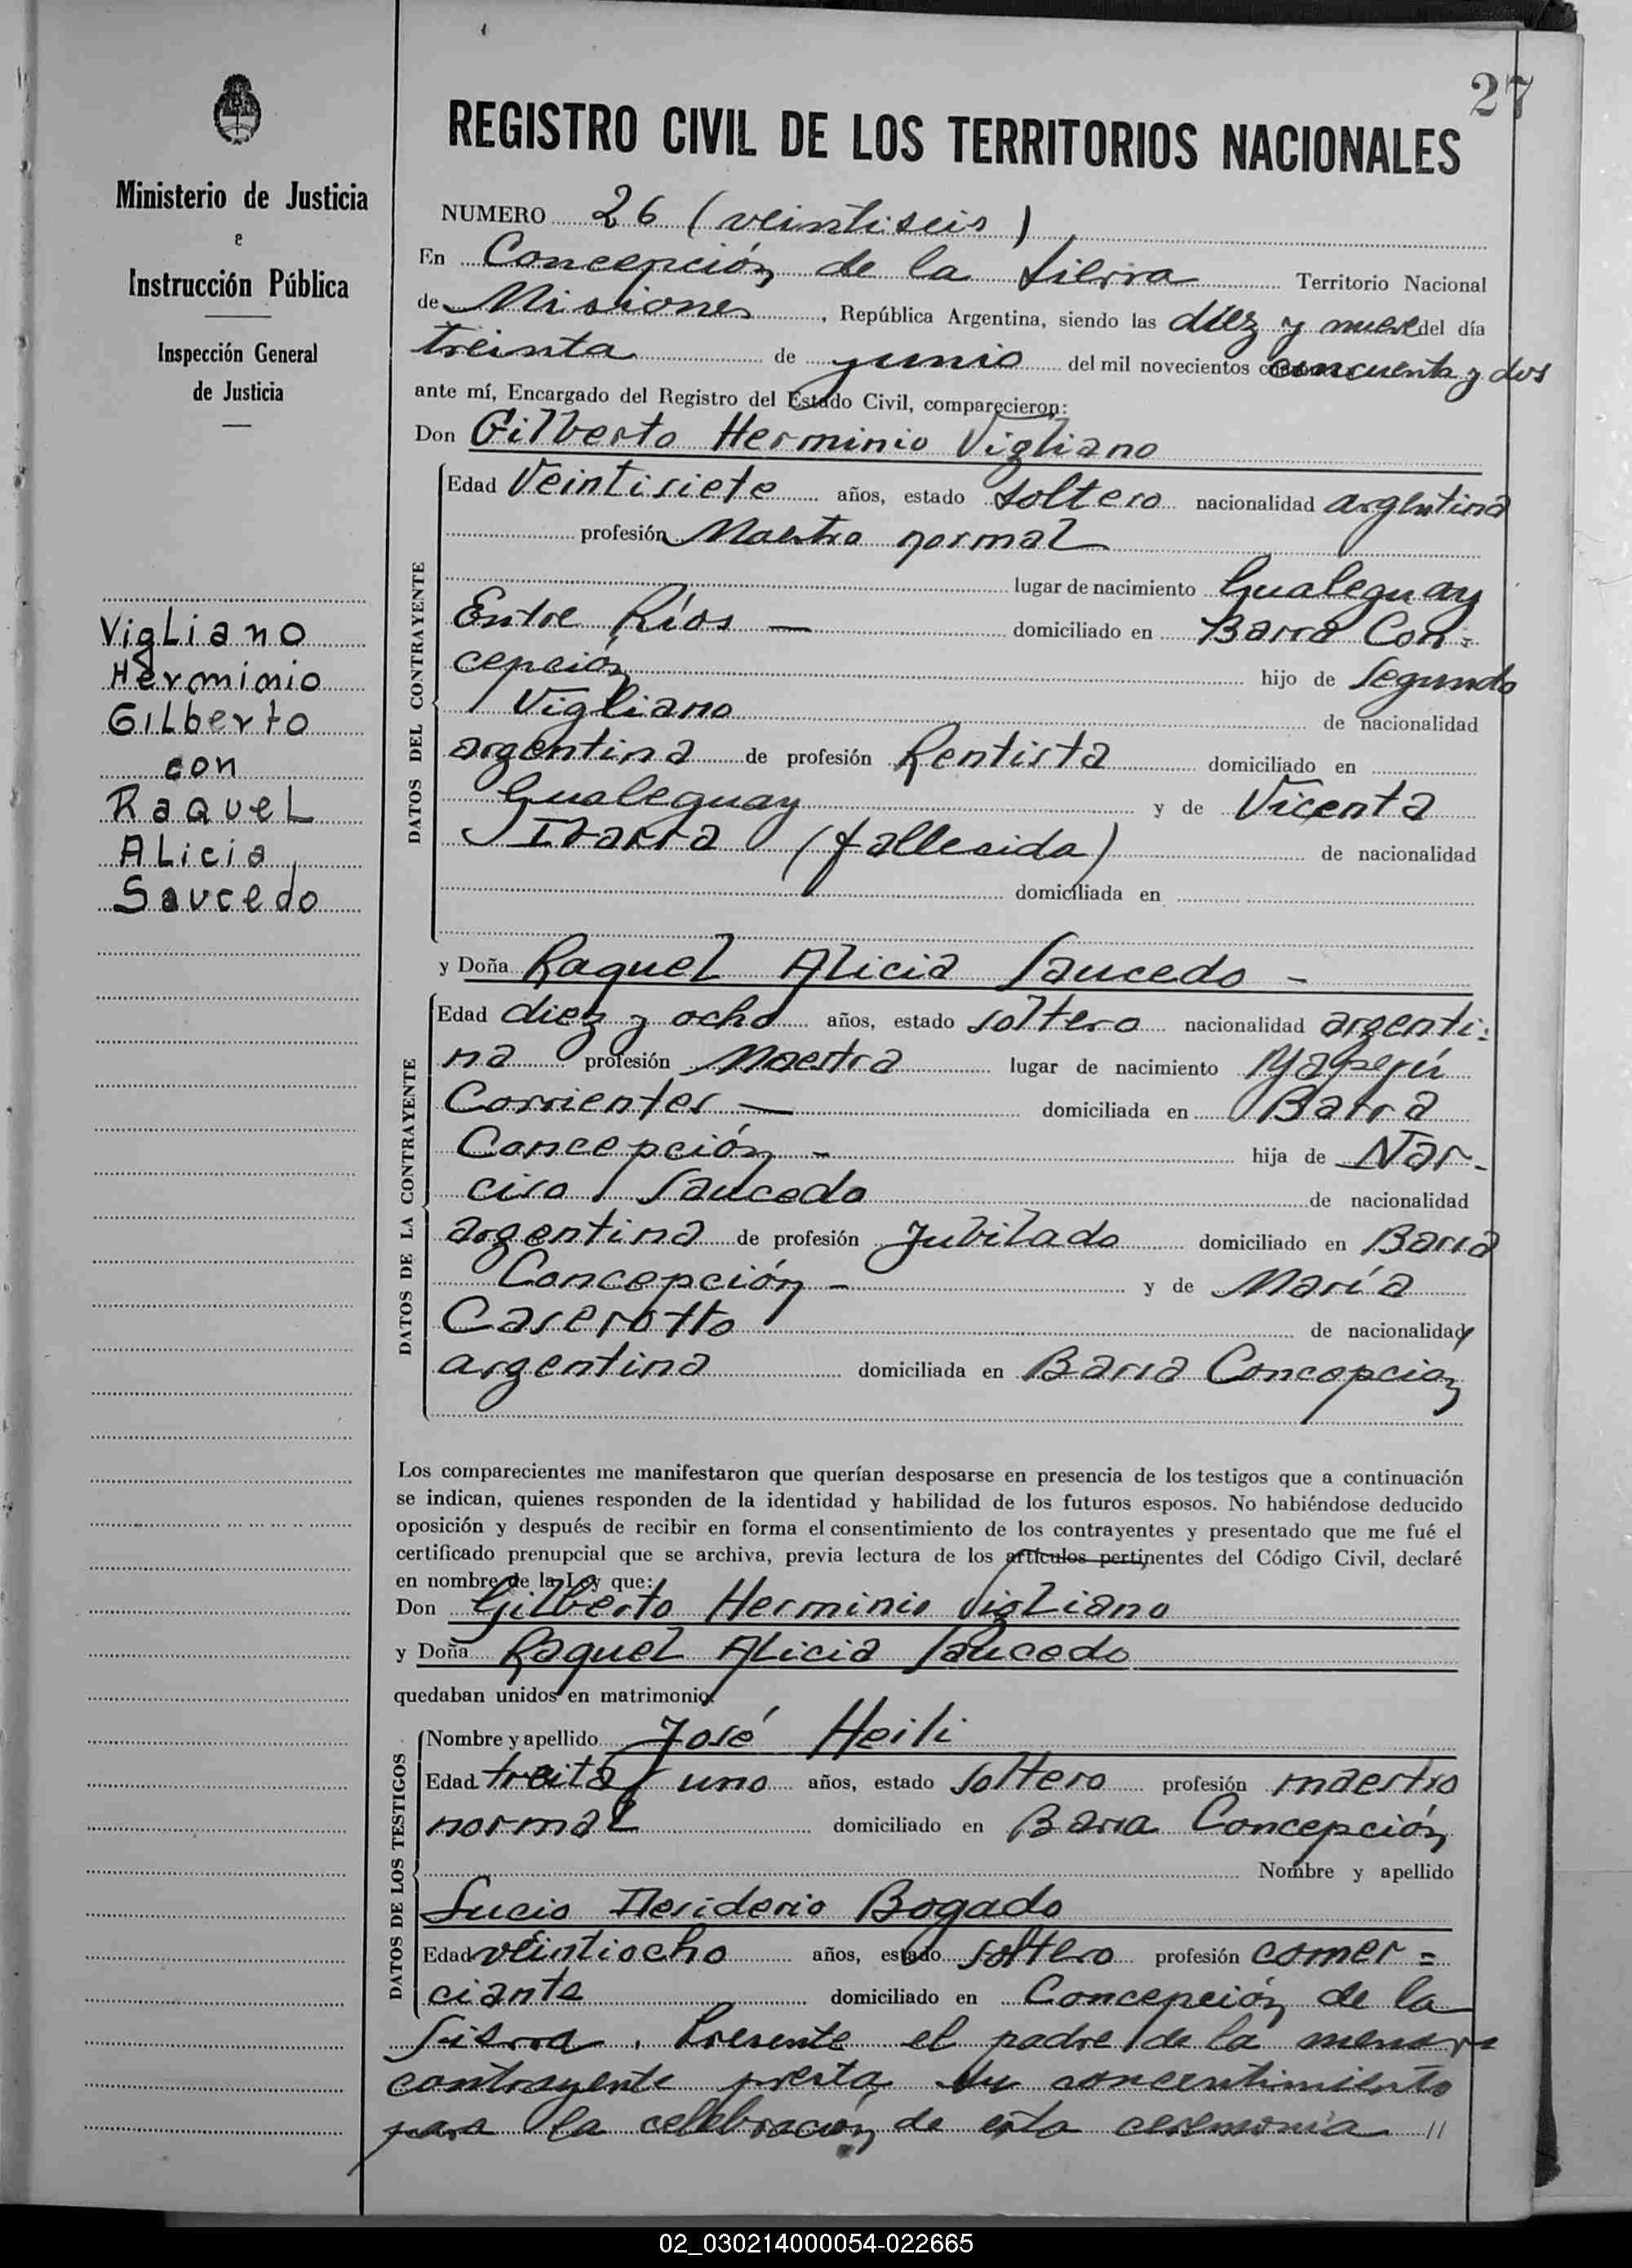 27
Ministerio de Justicia
e
Instrucción Pública
Inspección General
de Justicia
Vigliano
Herminio
Gilberto
con
Raquel
Alicia
Saucedo
REGISTRO CIVIL DE LOS TERRITORIOS NACIONALES
NUMERO 26 (veintiseis)
En Concepción de la Sierra Territorio Nacional
de Misiones, República Argentina, siendo las diez y nueve del día
treinta de junio del mil novecientos cincuenta y dos
ante mí, Encargado del Registro del Estado Civil, comparecieron:
Don Gilberto Herminio Vigliano
DATOS DEL CONTRAYENTE
Edad Veintisiete años, estado soltero nacionalidad argentina
profesión Maestro normal
lugar de nacimiento Gualeguay
Entre Ríos — domiciliado en Barra Con=
cepción hijo de Segundo
Vigliano de nacionalidad
argentina de profesión Rentista domiciliado en
Gualeguay y de Vicenta
Ibarra (fallesida) de nacionalidad
domiciliada en
y Doña Raquel Alicia Saucedo -
DATOS DE LA CONTRAYENTE
Edad diez y ocho años, estado soltera nacionalidad argenti=
na profesión Maestra lugar de nacimiento Yapeyú
Corrientes — domiciliada en Barra
Concepción - hija de Nar-
ciso Saucedo de nacionalidad
argentina de profesión Jubilado domiciliado en Barra
Concepción - y de María
Caserotto de nacionalidad
argentina domiciliada en Barra Concepción
Los comparecientes me manifestaron que querían desposarse en presencia de los testigos que a continuación
se indican, quienes responden de la identidad y habilidad de los futuros esposos. No habiéndose deducido
oposición y después de recibir en forma el consentimiento de los contrayentes y presentado que me fué el
certificado prenupcial que se archiva, previa lectura de los artículos pertinentes del Código Civil, declaré
en nombre de la Ley que:
Don Gilberto Herminio Vigliano
y Doña Raquel Alicia Saucedo
quedaban unidos en matrimonio.
DATOS DE LOS TESTIGOS
Nombre y apellido José Heili
Edad treita y uno años, estado soltero profesión maestro
normal domiciliado en Barra Concepción
Nombre y apellido
Lucio Desiderio Bogado
Edad veintiocho años, estado soltero profesión comer=
ciante domiciliado en Concepción de la
Sierra. Presente el padre de la menor
contrayente presta su concentimiento
para la celebración de esta ceremonia //
02_030214000054-022665